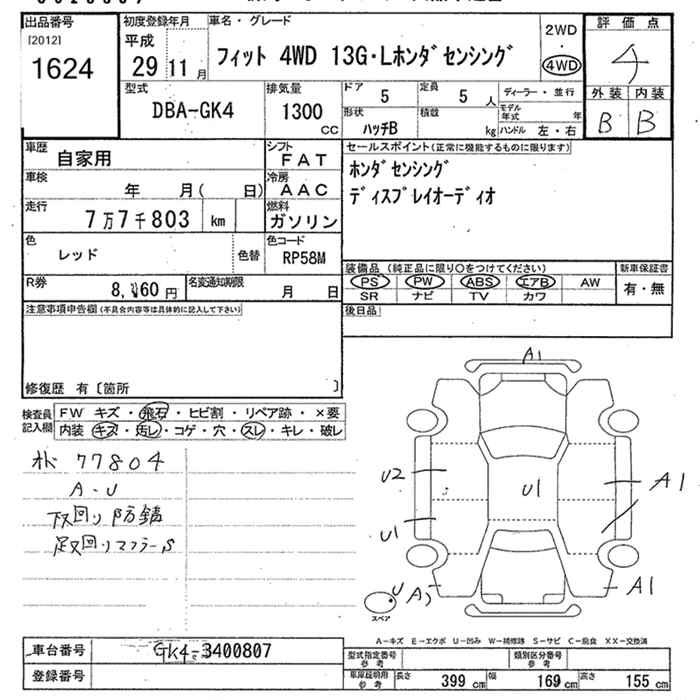 出品番号
[2012]
1624
初度登録年月
平成
29 11 月
車名・グレード
フィット 4WD 13G・Lホンダセンシング
2WD
・
4WD
評価点
4
外装 内装
B B
型式
DBA-GK4
排気量
1300
CC
ドア
5
定員
5 人
形状
ハッチB
積載
kg
ディーラー・並行
モデル年式 年
ハンドル 左・右
車歴
自家用
シフト
FAT
車検
年 月( 日)
冷房
AAC
走行
7万7千803 km
燃料
ガソリン
色
レッド
色替
色コード
RP58M
R券
円
名変通知期限
月 日
セールスポイント(正常に機能するものに限ります)
ホンダセンシング
ディスプレイオーディオ
装備品 (純正品に限り○をつけてください)
PS PW ABS エアB AW
SR ナビ TV カワ
新車保証書
有・無
後日品
注意事項申告欄(不具合内容等は具体的に記入して下さい)
修復歴 有〔箇所 〕
検査員記入欄
FW キズ・飛石・ヒビ割・リペア跡・×要
内装 キズ・汚レ・コゲ・穴・スレ・キレ・破レ
77804
A・U
下回り防錆
足回りマフラーS
A1
U2
U1
U1
A1
A1
U
スペア
A-キズ E-エクボ U-凹み W-補修跡 S-サビ C-腐食 XX-交換済
車台番号
GK4-3400807
登録番号
型式指定番号
参考
類別区分番号
参考
車庫証明用
参考
長さ 399 cm 幅 169 cm 高さ 155 cm